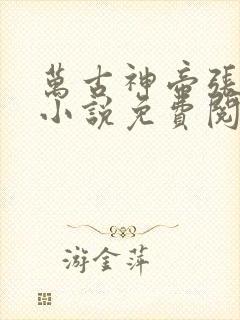 萬古神帝張
小說免費閱
游金萍